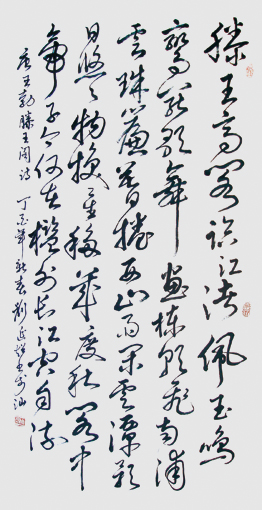 滕王高阁临江渚佩玉鸣
鸾罢歌舞画栋朝飞南浦
云珠帘暮捲西山雨闲云潭影
日悠悠物换星移几度秋阁中
帝子今何在槛外长江空自流
唐王勃滕王阁诗 丁 年新春刘 书于汕